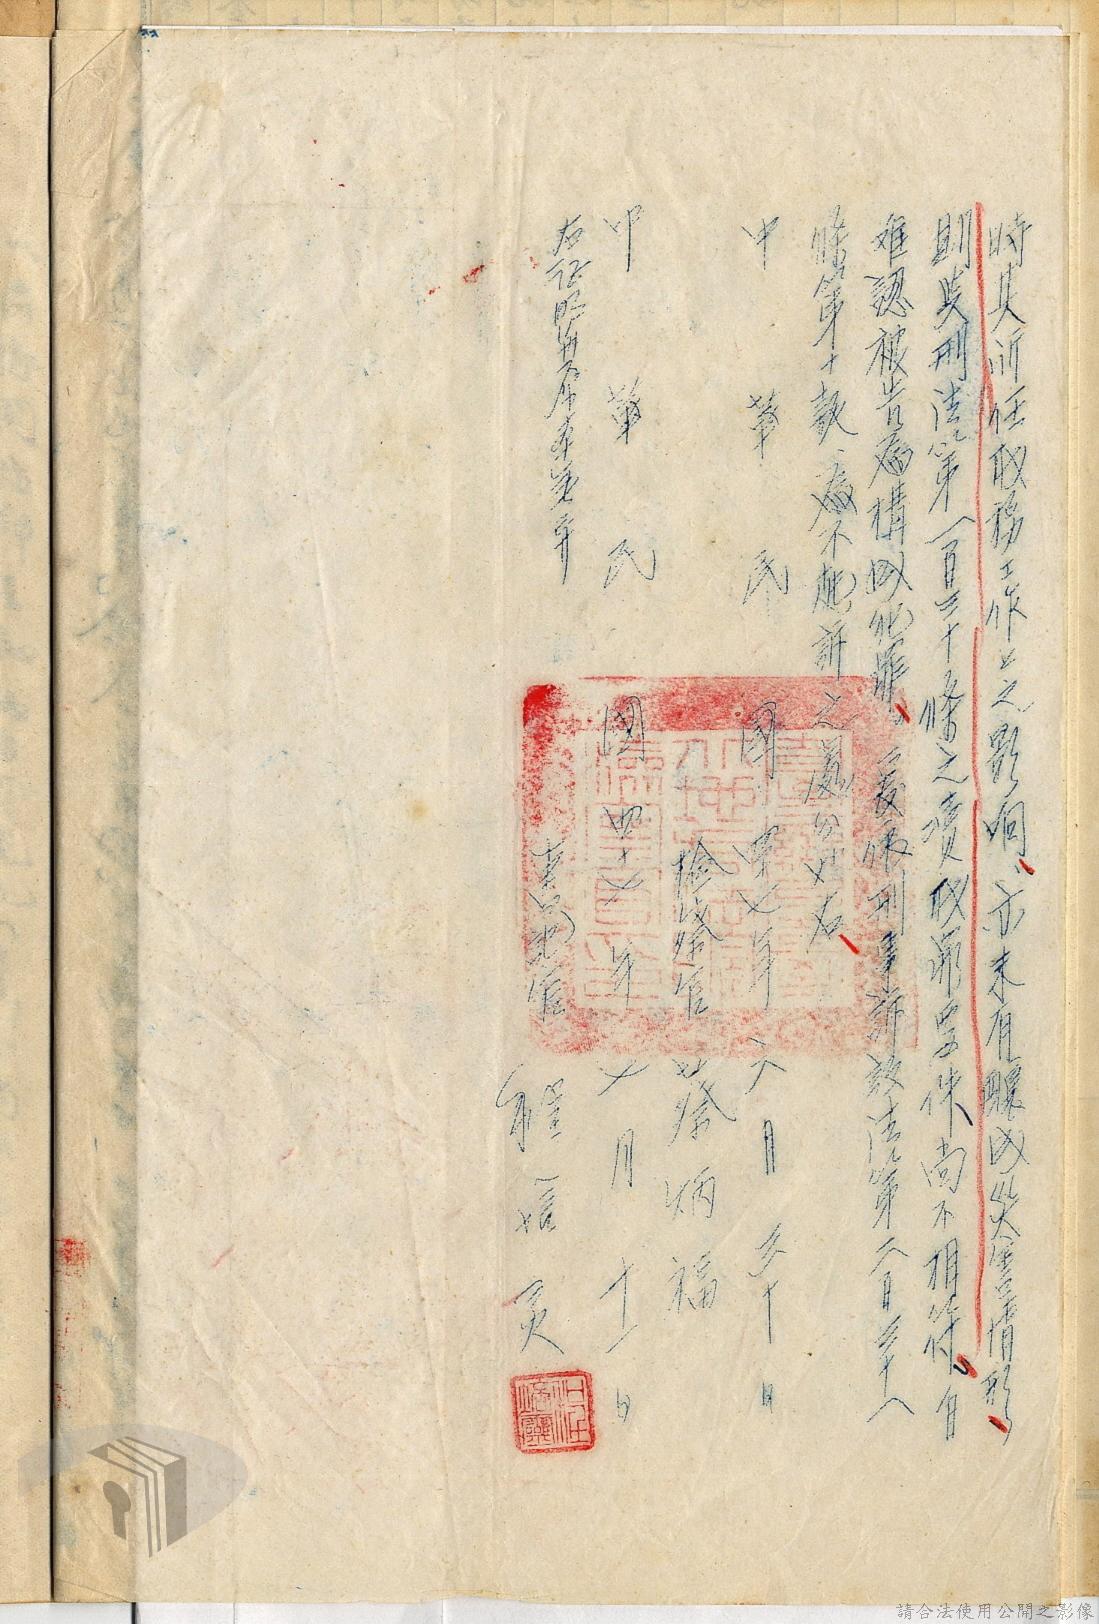 時其所任職務工作上之影响、亦未有釀成災害情形、
則與刑法第一百三十條之瀆职罪要件尚不相符、自
难認被告為構成犯罪、爰依刑事訴訟法第二百三十一
條第十款為不起訴之處分如右、
中華民國四十七年六月三十日
檢察官 蔡炳福
中華民國四十七年七月十一日
右証明與原本無異
書記官
請合法使用公開之影像